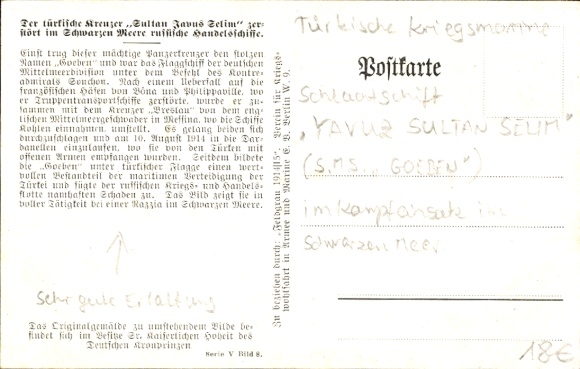 Der türkische Kreuzer „Sultan Javus Selim" zer-
stört im Schwarzen Meere russische Handelsschiffe.
Einst trug dieser mächtige Panzerkreuzer den stolzen
Namen „Goeben" und war das Flaggschiff der deutschen
Mittelmeerdivision unter dem Befehl des Kontre-
admirals Souchon. Nach einem Ueberfall auf die
französischen Häfen von Bôna und Philippaville, wo
er Truppentransportschiffe zerstörte, wurde er zu-
sammen mit dem Kreuzer „Breslau" von dem eng-
lischen Mittelmeergeschwader in Messina, wo die Schiffe
Kohlen einnahmen, umstellt. Es gelang beiden sich
durchzuschlagen und am 10. August 1914 in die Dar-
danellen einzulaufen, wo sie von den Türken mit
offenen Armen empfangen wurden. Seitdem bildete
die „Goeben" unter türkischer Flagge einen wert-
vollen Bestandteil der maritimen Verteidigung der
Türkei und fügte der russischen Kriegs- und Handels-
flotte namhaften Schaden zu. Das Bild zeigt sie in
voller Tätigkeit bei einer Razzia im Schwarzen Meere.
Sehr gute Erhaltung
Das Originalgemälde zu umstehendem Bilde be-
findet sich im Besitze Sr. Kaiserlichen Hoheit des
Deutschen Kronprinzen
Serie V Bild 8.
Zu beziehen durch: „Feldgrau 1914/15". Verein für Kriegs-
wohlfahrt in Armee und Marine E. V. Berlin W. 9.
Türkische Kriegsmarine
Postkarte
Schlachtschiff
„YAVUZ SULTAN SELIM"
(S.M.S. „GOEBEN")
im Kampfeinsatz im
Schwarzen Meer
18€